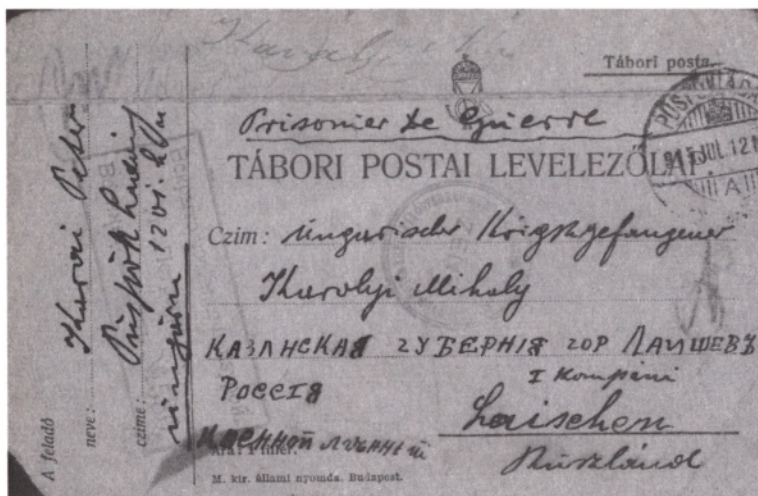 Tábori posta.
Prisonier de Guerre
TÁBORI POSTAI LEVELEZŐLAP
915 JUL. 12
A
Czim: Ungarischer Krigsgefangener
Karolyi Mihaly
КАЗАНСКАЯ ГУБЕРНІЯ ГОР ЛАИШЕВЪ
РОССІЯ
I Kompani
Laischen
Ruszland
Ára: 1 fillér.
M. kir. állami nyomda. Budapest.
A feladó
neve: Karai Peter
czime: Püspök
1201.
Ungarn